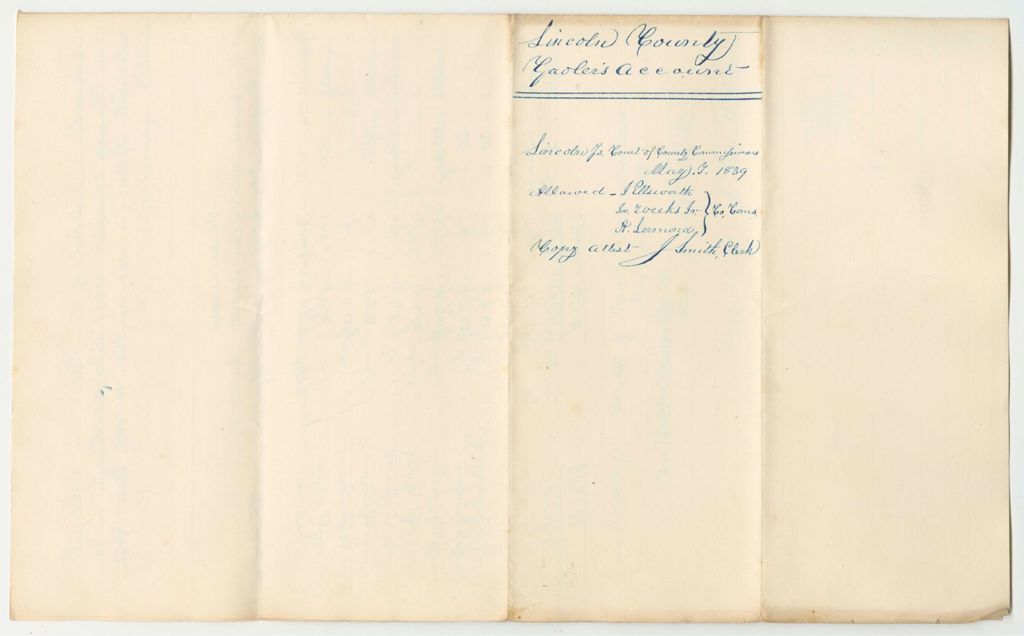 Lincoln County
Gaoler's Account
Lincoln Js. Court of County Commissioners
May. T. 1839
Allowed - J Ellsworth
Jn. Weeks Jr. } Co. Coms.
A. Lermond
Copy attest J Smith, Clerk